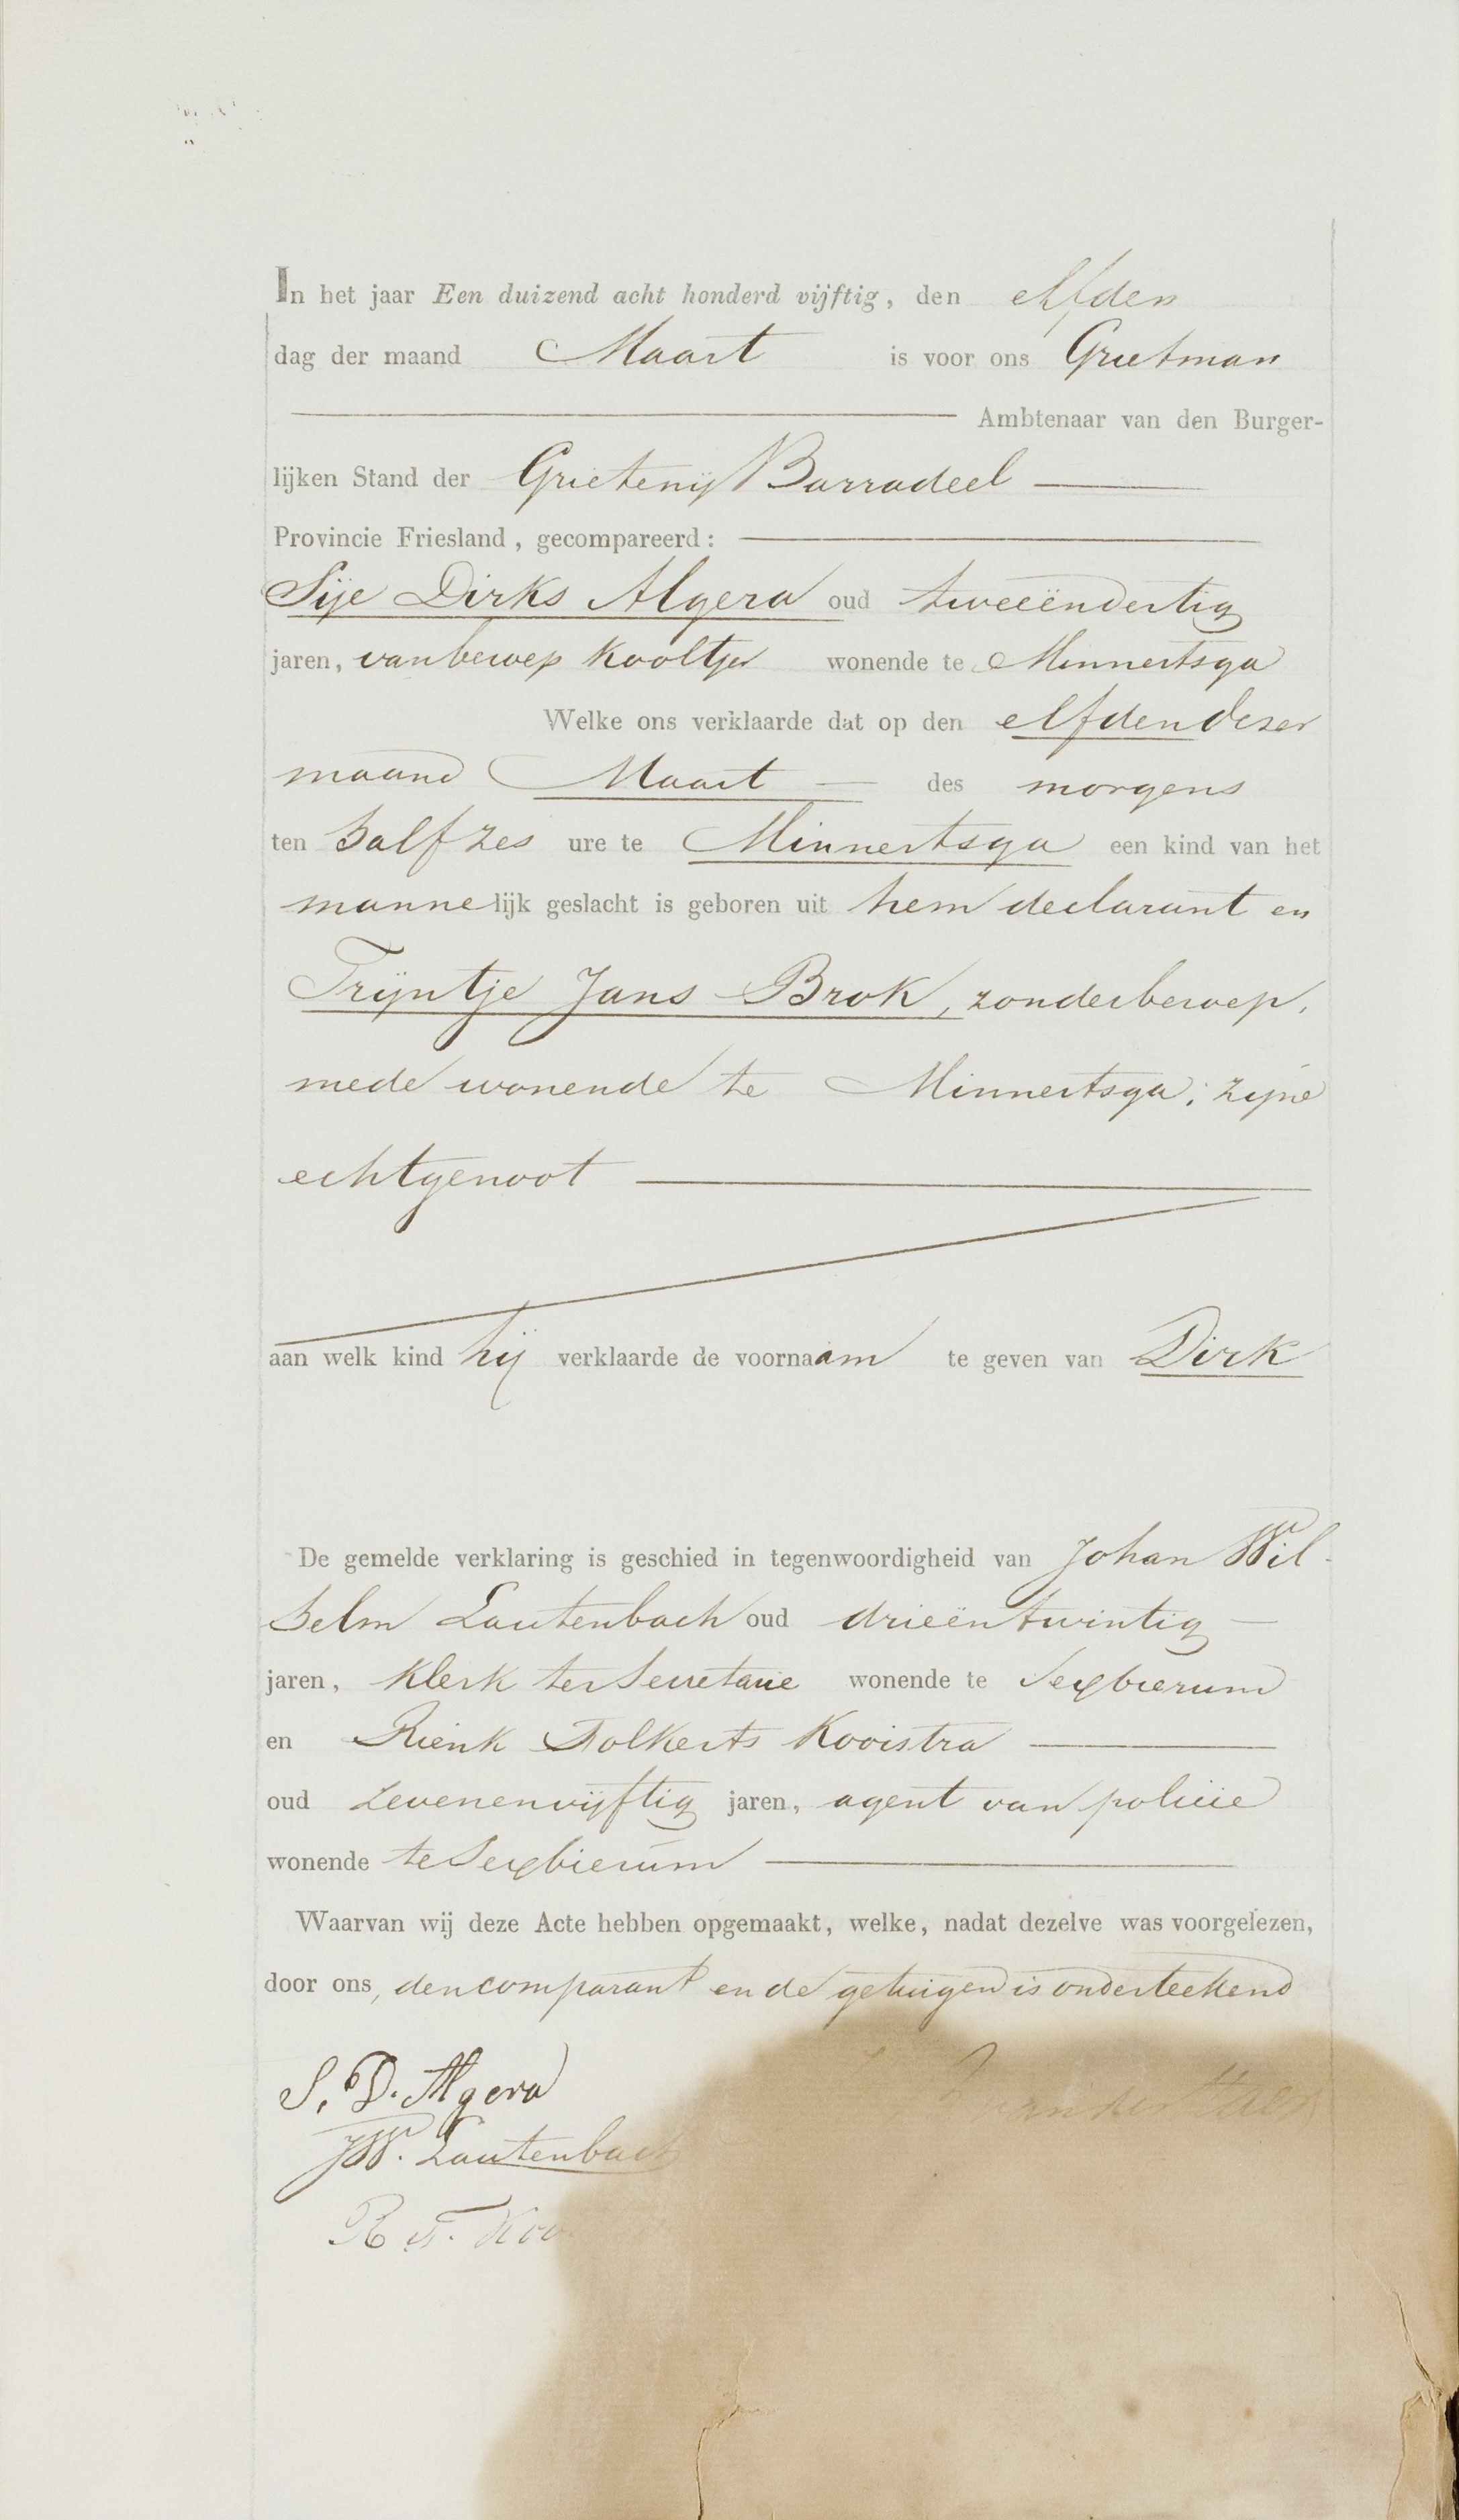 In het jaar Een duizend acht honderd vijftig, den elfden
dag der maand Maart is voor ons Grietman
Ambtenaar van den Burger-
lijken Stand der Grietenij Barradeel
Provincie Friesland, gecompareerd:
Sije Dirks Algera oud tweeëndertig
jaren, van beroep Kooltjer wonende te Minnertsga
Welke ons verklaarde dat op den elfden dezer
maand Maart des morgens
ten half zes ure te Minnertsga een kind van het
mannelijk geslacht is geboren uit hem declarant en
Trijntje Jans Brok, zonder beroep,
mede wonende te Minnertsga; zijne
echtgenoot
aan welk kind hij verklaarde de voornaam te geven van Dirk
De gemelde verklaring is geschied in tegenwoordigheid van Johan Wil-
helm Lautenbach oud drieëntwintig
jaren, Klerk ter Secretarie wonende te Sexbierum
en Rienk Folkerts Kooistra
oud zevenenvijftig jaren, agent van policie
wonende te Sexbierum
Waarvan wij deze Acte hebben opgemaakt, welke, nadat dezelve was voorgelezen,
door ons, den comparant en de getuigen is onderteekend
S. D. Algera
JW. Lautenbach
R F. Koo